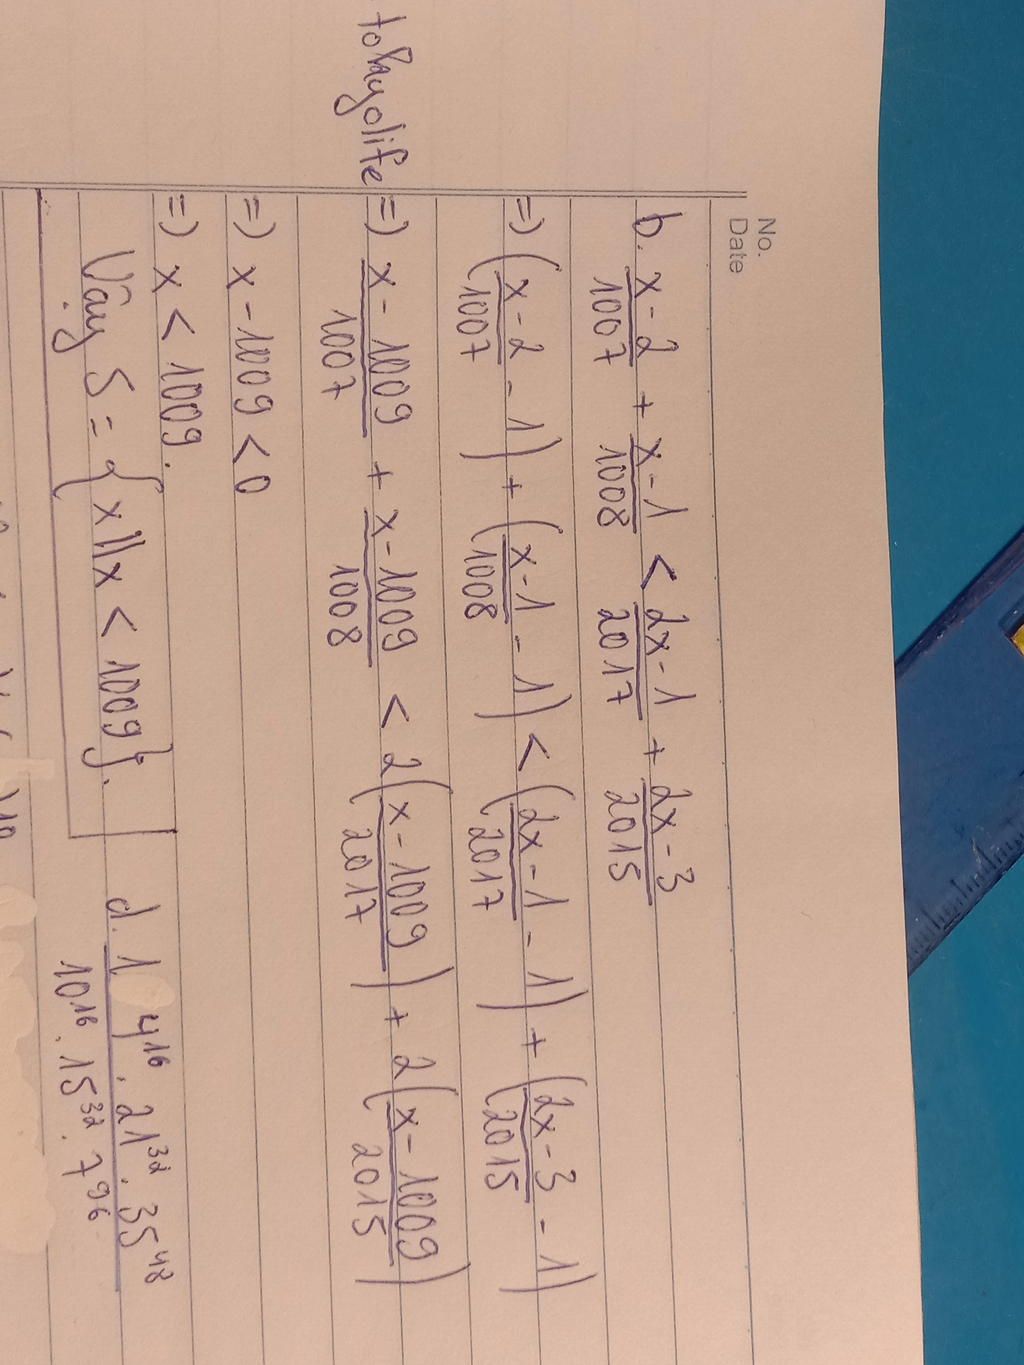 No.
Date
b. x-2/1007 + x-1/1008 < 2x-1/2017 + 2x-3/2015
=) (x-2/1007 - 1) + (x-1/1008 - 1) < (2x-1/2017 - 1) + (2x-3/2015 - 1)
=) x-1009/1007 + x-1009/1008 < 2(x-1009/2017) + 2(x-1009/2015)
=) x-1009 < 0
=) x < 1009.
Vậy S = {x || x < 1009}.
d. 1 4^16 . 21^32 . 35^48 / 10^16 . 15^32 . 7^96